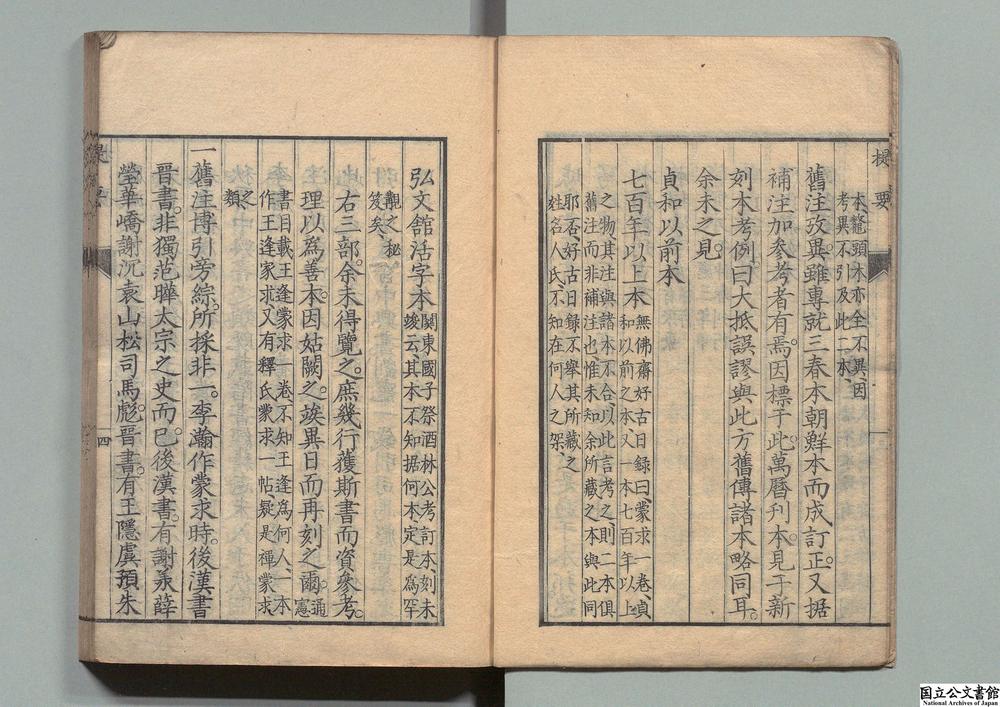 提要
本鼇頭本亦全不異因
考異不引及此二本、
舊注攷異。雖專就三春本朝鮮本而成訂正。又据
補注加參考者有焉。因標于此。萬曆刊本。見于新
刻本考例曰大抵誤謬與此方舊傳諸本略同耳。
余未之見。
貞和以前本
七百年以上本
無佛齋好古日録曰、蒙求一卷、貞
和以前之本又一本七百年以上
之物其注與諸本不合、以此言考之、則二本俱
舊注而非補注也、惟未知余所藏之本與此同
耶否、好古日録不舉其所藏之
姓名人氏、不知在何人之架、
弘文館活字本
關東國子祭酒林公考訂本、刻未
竣云、其本不知据何本、定是為罕
覯之秘
笈矣、
右三部。余未得覽之。庶幾行獲斯書而資參考。
理以為善本。因姑闕之。竢異日而再刻之爾。
通憲
書目載王逢蒙求一卷不知王逢為何人、一本
作王逢家求、又有釋氏蒙求一帖、疑是禪蒙求
之
類
一舊注博引旁綜。所採非一。李瀚作蒙求時。後漢書
晉書。非獨范曄太宗之史而已。後漢書。有謝承薛
瑩華嶠謝沉袁山松司馬彪。晉書。有王隱虞預朱
四
国立公文書館
National Archives of Japan